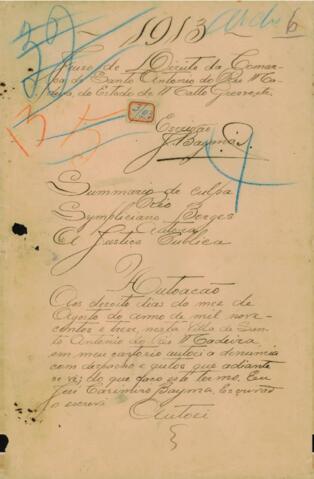 1913
Juizo de Direito da Comar-
ca de Santo Antonio do Rio Ma-
deira, do Estado de Matto Grosso
Escrivão
J. Bayma
Summario de culpa
Réo
Sympliciano Borges
Autora
A Justiça Publica
Autoacão
Aos dezoito dias do mez de
Agosto do anno de mil nove-
centos e treze, nesta Villa de San-
to Antonio do Rio Madeira,
em meu cartorio autoei a denuncia
com despacho e autos que adiante
se vê; do que faço este termo. Eu
José Casimiro Bayma, Escrivão
o escrevi
Autoei